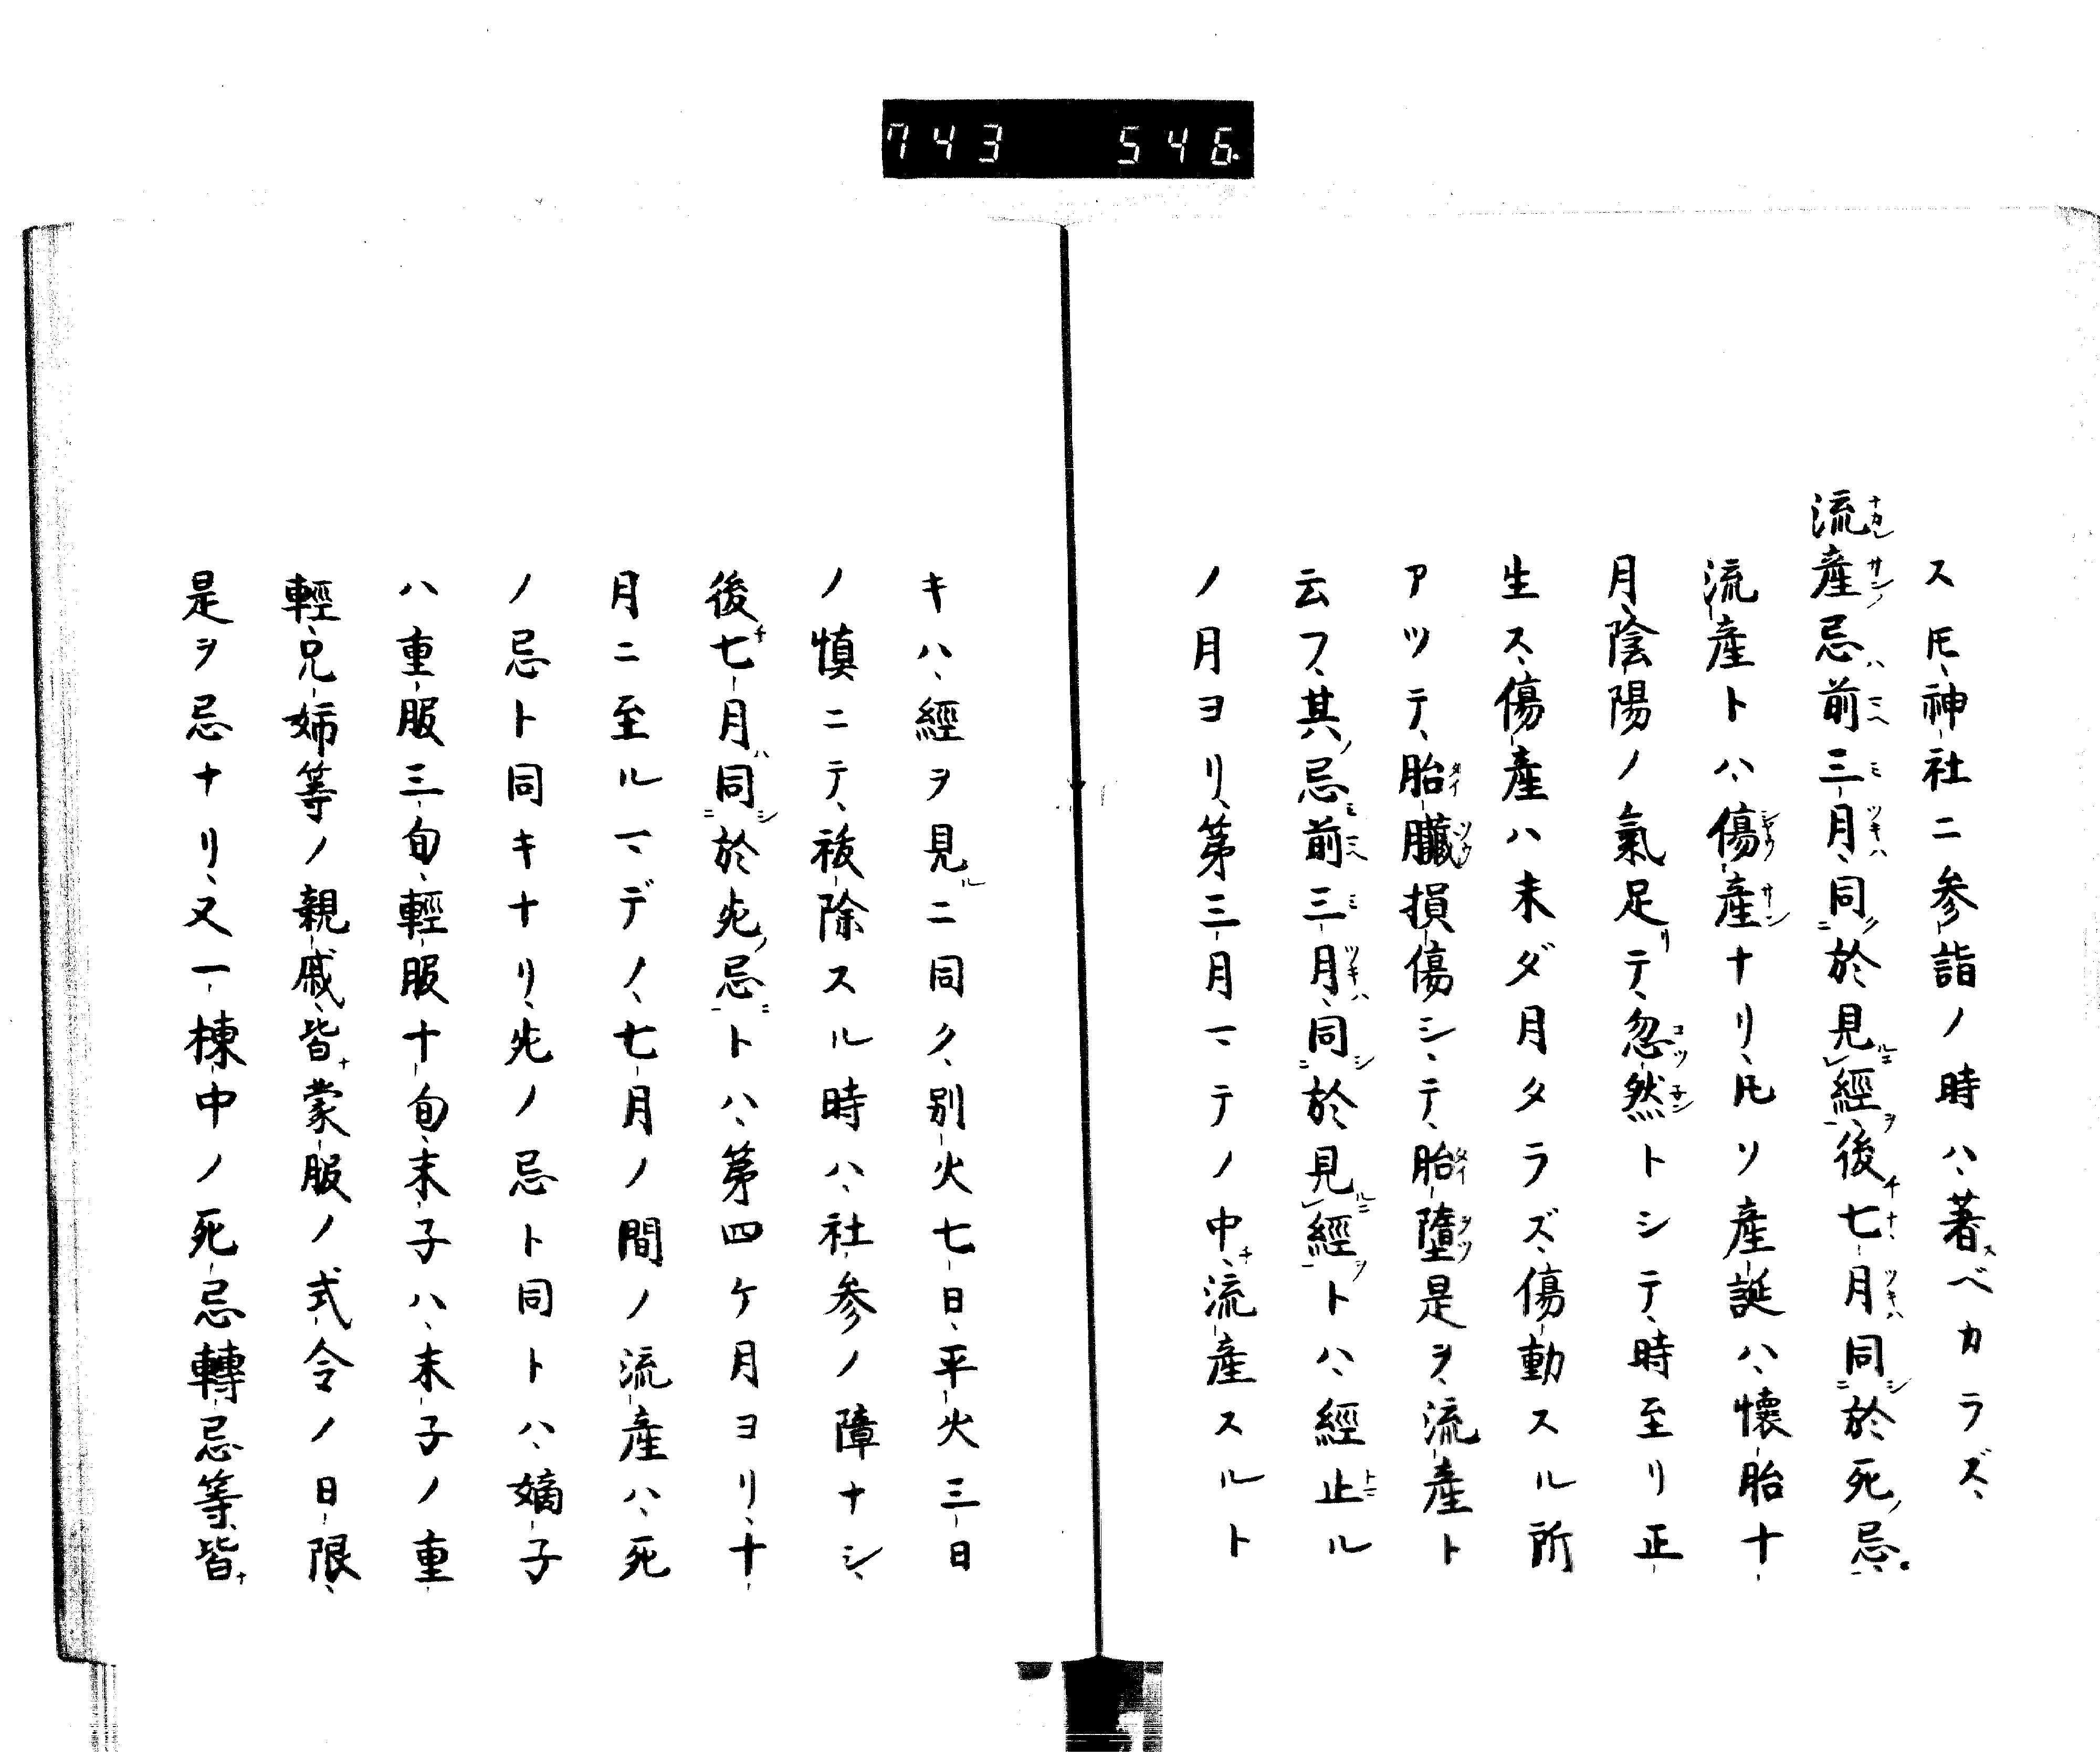 743 546
スㇳモ、神社ニ参詣ノ時ハ、著スベカラズ、
流産忌前三月、同於見經、後七月同於死忌、
流産トハ、傷産ナリ、凡ソ産誕ハ、懐胎十
月、陰陽ノ氣足リテ、忽然トシテ、時至リ正
生ス、傷産ハ未ダ月タラズ、傷動スル所
アツテ、胎臓損傷シテ、胎墮是ヲ、流産ト
云フ、其忌前三月、同於見經トハ、經止ル
ノ月ヨリ、第三月マテノ中、流産スルト
キハ、經ヲ見ルニ同ク、別火七日、平火三日
ノ慎ニテ、祓除スル時ハ、社参ノ障ナシ、
後七月同於死忌トハ、第四ケ月ヨリ、十
月ニ至ルマデノ、七月ノ間ノ流産ハ、死
ノ忌ト同キナリ、死ノ忌ト同トハ、嫡子
ハ重服三旬、輕服十旬、末子ハ、末子ノ重
輕、兄姉等ノ親戚、皆蒙服ノ式令ノ日限、
是ヲ忌ナリ、又一棟中ノ死忌轉忌等、皆